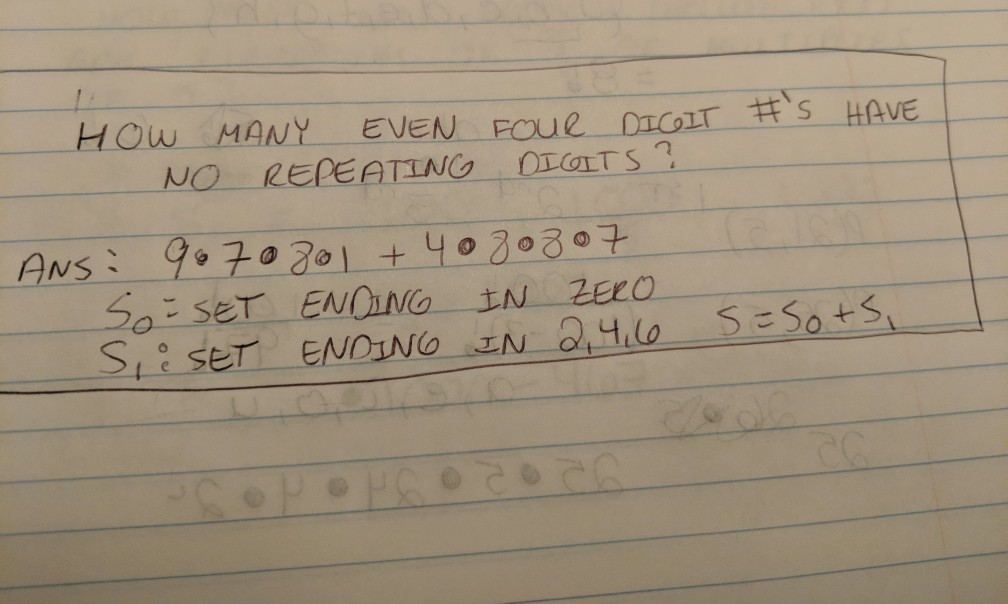 1.
HOW MANY EVEN FOUR DIGIT #'S HAVE
NO REPEATING DIGITS?
ANS: 9•7•8•1 + 4•8•8•7
S₀ = SET ENDING IN ZERO
S₁: SET ENDING IN 2,4,6 S = S₀ + S₁